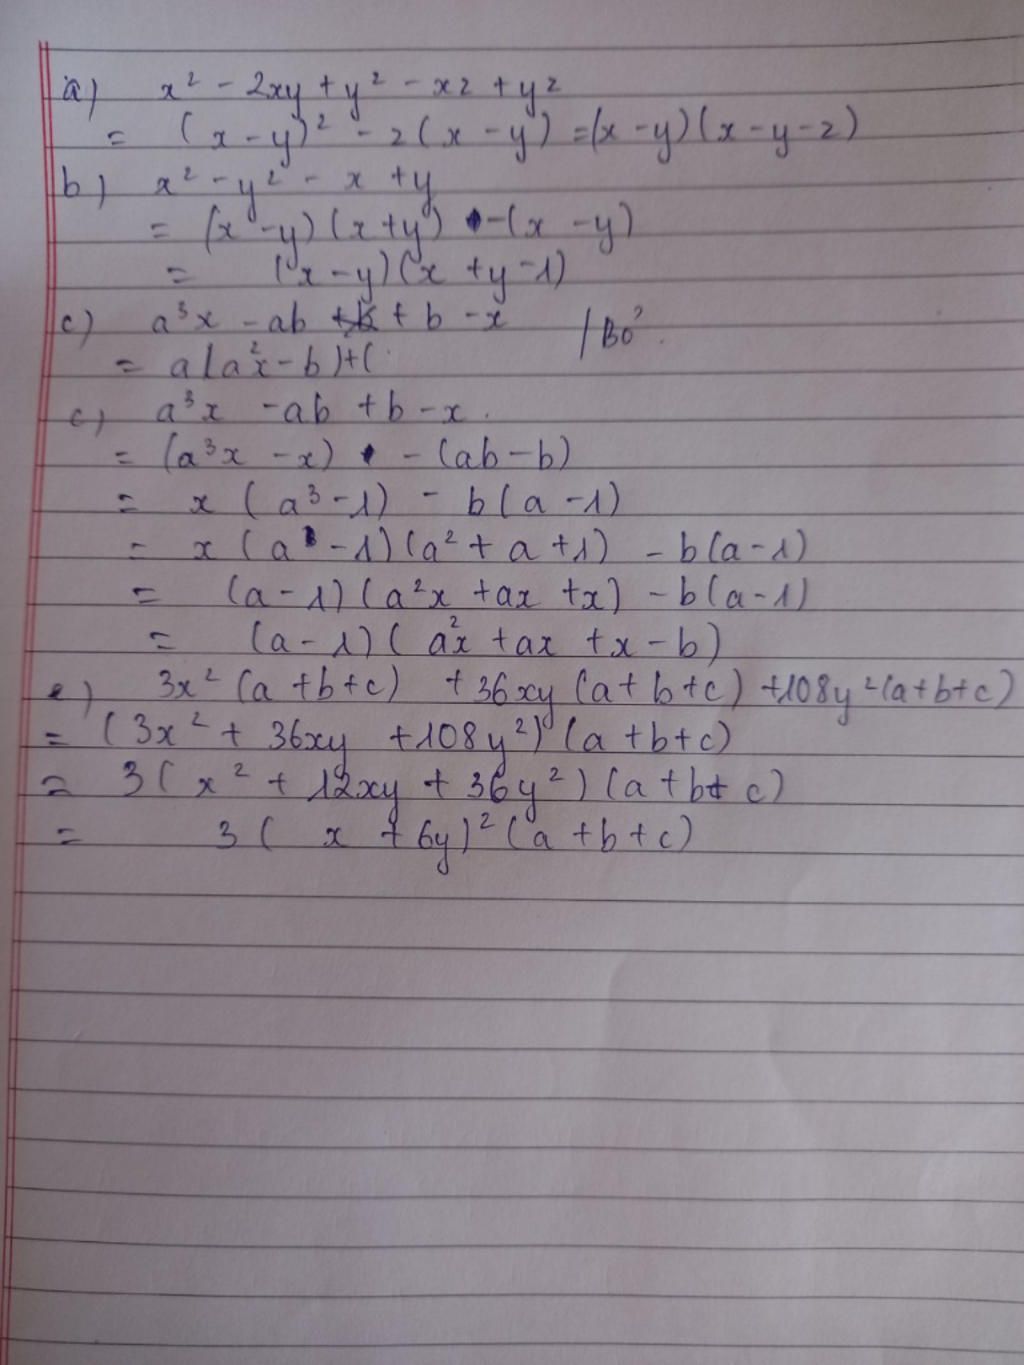 a) x² - 2xy + y² - xz + yz
= (x - y)² - z(x - y) = (x - y)(x - y - z)
b) x² - y² - x + y
= (x - y)(x + y) - (x - y)
= (x - y)(x + y - 1)
c) a³x - ab + b - x / Bỏ
= a(a²x - b) + (
c) a³x - ab + b - x.
= (a³x - x) - (ab - b)
= x(a³ - 1) - b(a - 1)
= x(a - 1)(a² + a + 1) - b(a - 1)
= (a - 1)(a²x + ax + x) - b(a - 1)
= (a - 1)(a²x + ax + x - b)
e) 3x²(a + b + c) + 36xy(a + b + c) + 108y²(a + b + c)
= (3x² + 36xy + 108y²)(a + b + c)
= 3(x² + 12xy + 36y²)(a + b + c)
= 3(x + 6y)²(a + b + c)